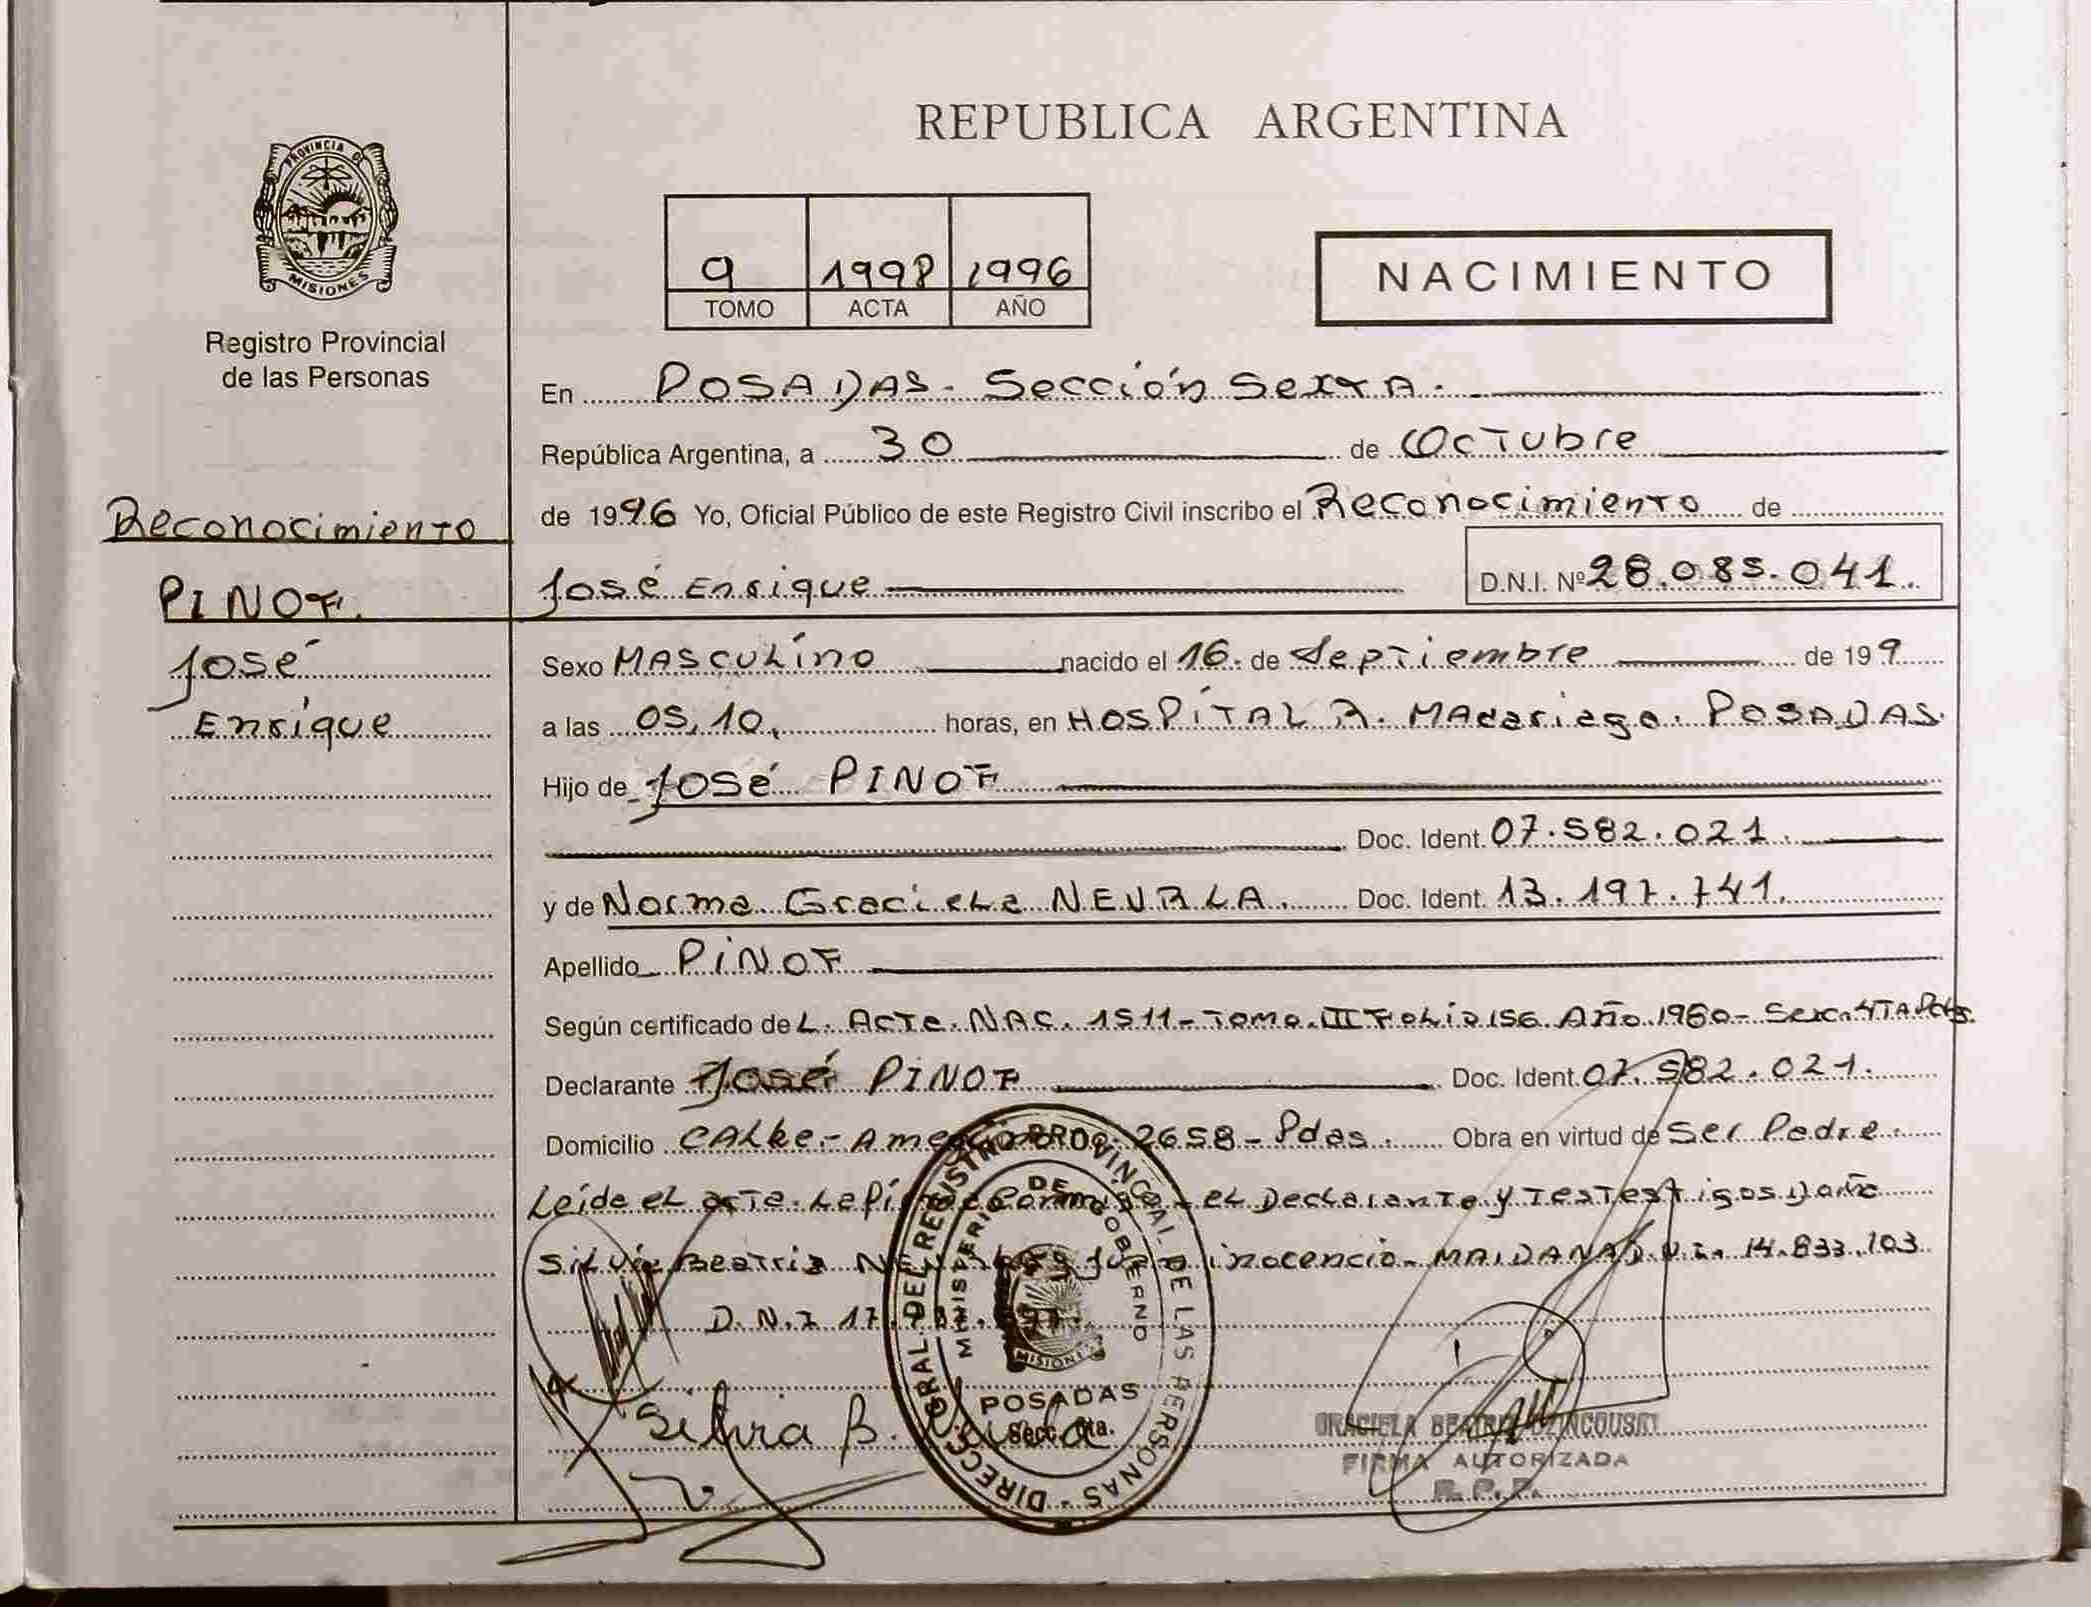 PROVINCIA DE
MISIONES
Registro Provincial
de las Personas
Reconocimiento
PINOT.
José
Enrique
REPUBLICA ARGENTINA
9 1998 1996
TOMO ACTA AÑO
NACIMIENTO
En POSADAS. Sección Sexta.
República Argentina, a 30 de Octubre
de 1996 Yo, Oficial Público de este Registro Civil inscribo el Reconocimiento de
José Enrique D.N.I. Nº 28.085.041.
Sexo Masculino nacido el 16. de Septiembre de 199
a las 05,10, horas, en HOSPITAL R. MAdariaga. POSADAS.
Hijo de José PINOT
Doc. Ident. 07.582.021.
y de Norma Graciela NEURLA. Doc. Ident. 13.197.741.
Apellido PINOT
Según certificado de L. Acta. NAC. 1511 - Tomo. III Folio 156 Año 1980 -
Declarante José PINOT Doc. Ident. 07.582.021.
Domicilio CALLE.- 2658 - Pdas. Obra en virtud de Ser Padre.
Leída el acta. La el Declarante y Doña
Silvia Beatriz inocencio MAIDANA D.N.I. 14.833.103
D.N.I 17.
Silvia B.
DIRECC. GRAL. DEL REGISTRO PROVINCIAL DE LAS PERSONAS
MINISTERIO DE GOBERNO
MISIONES
POSADAS
Secc. 6ta.
GRACIELA BEATRIZ
FIRMA AUTORIZADA
R.P.P.